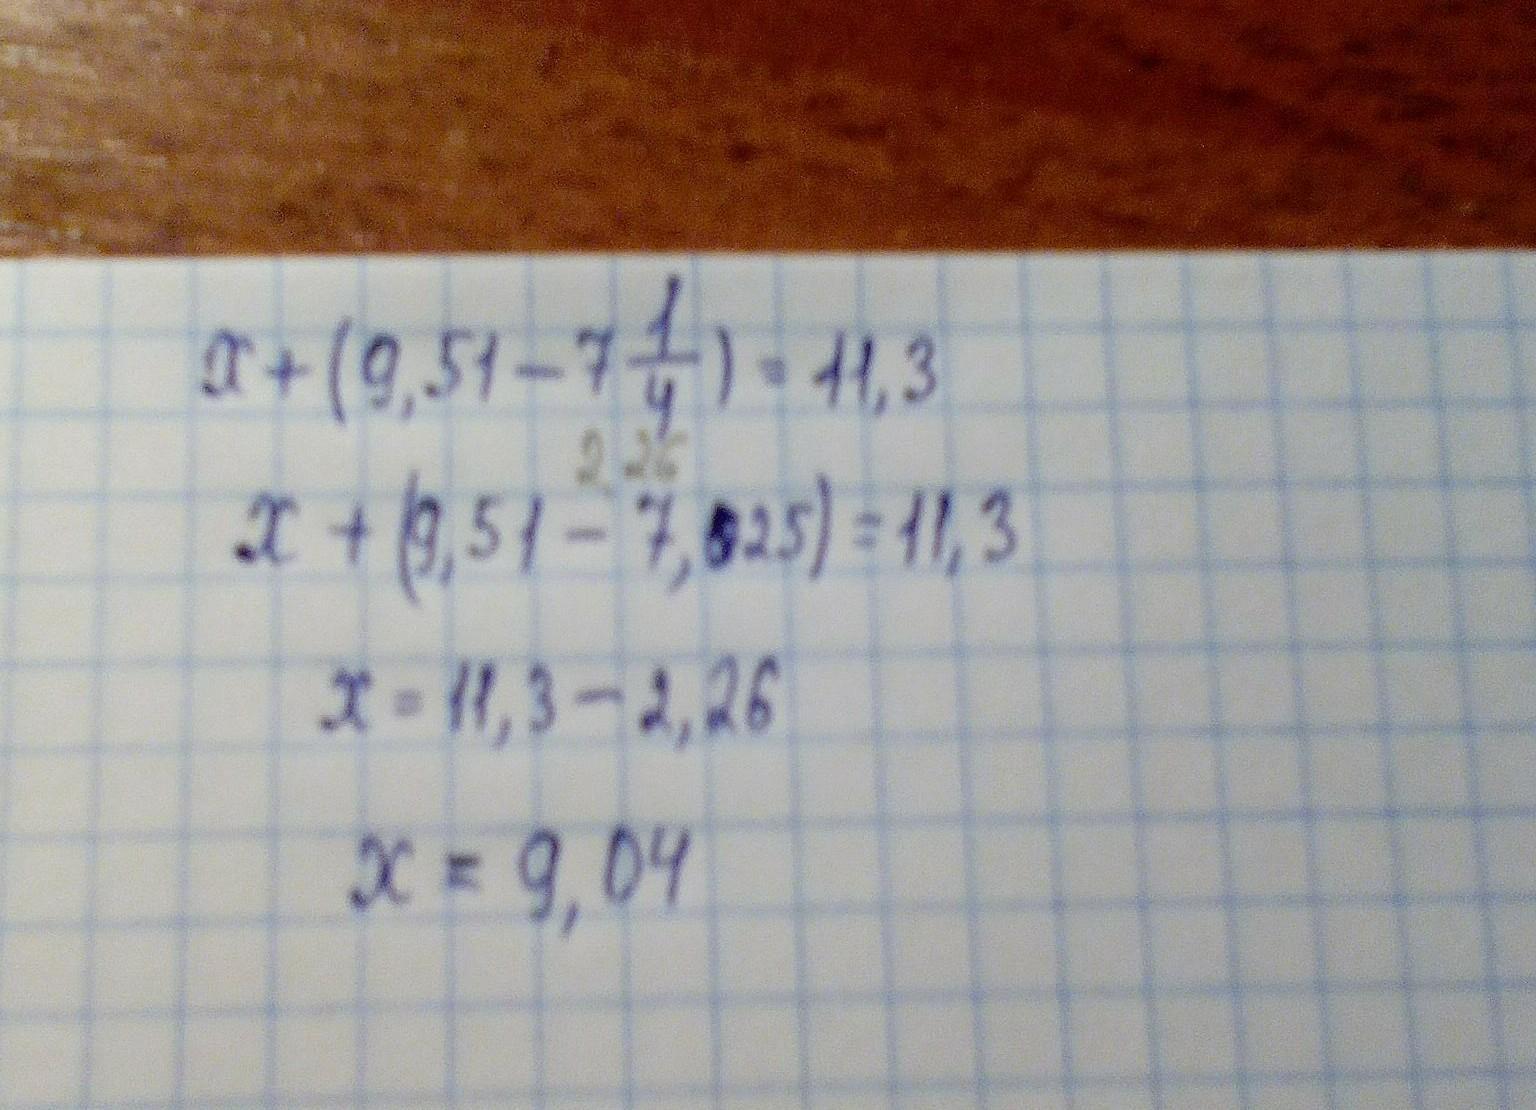 x + (9,51 - 7 1/4) = 11,3
2,26
x + (9,51 - 7,25) = 11,3
x = 11,3 - 2,26
x = 9,04